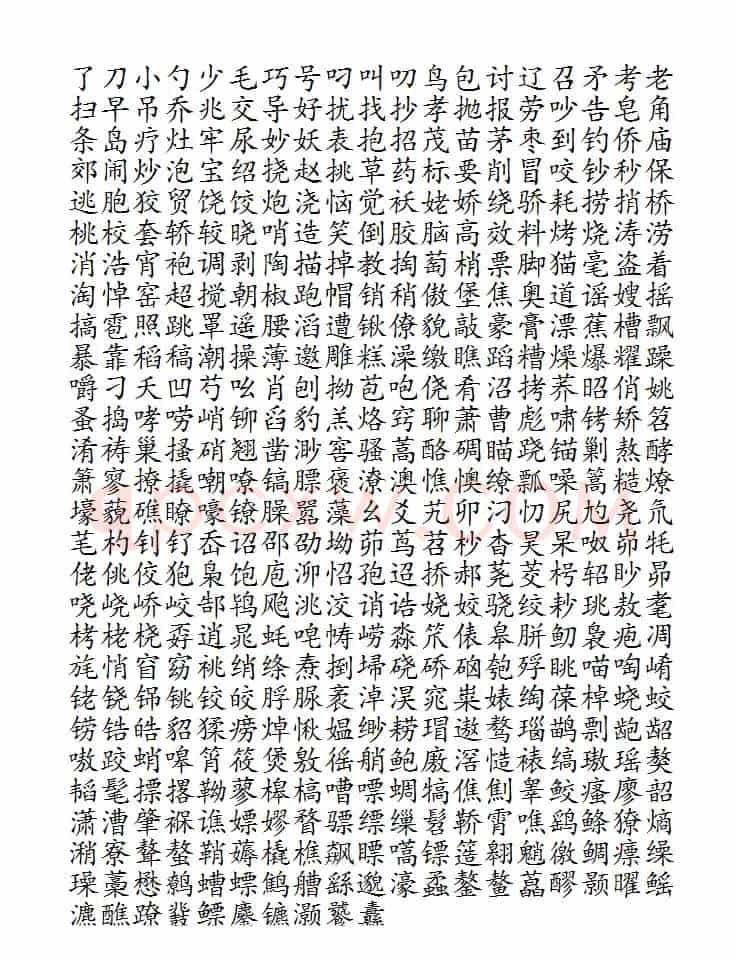 了刀小勺少毛巧号叼叫叨鸟包讨辽召矛考老
扫早吊乔兆交导好扰找抄孝抛报劳吵告皂角
条岛疗灶牢尿妙妖表抱招茂苗茅枣到钓侨庙
郊闹炒泡宝绍挠赵挑草药标要削冒咬钞秒保
逃胞狡贸饶饺炮浇恼觉袄姥娇绕骄耗捞捎桥
桃校套轿较晓哨造笑倒胶脑高效料烤烧涛涝
消浩宵袍调剥陶描掉教掏萄梢票脚猫毫盗着
淘悼窑超搅朝椒跑帽销稍傲堡焦奥道谣嫂摇
搞雹照跳罩遥腰滔遭锹僚貌敲豪膏漂蕉槽飘
暴靠稻稿潮操薄邀雕糕澡缴瞧蹈糟燥爆耀躁
嚼刁夭凹芍吆肖刨拗苞咆侥肴沼拷荞昭俏姚
蚤捣哮唠峭铆舀豹羔烙窍聊萧曹彪啸铐矫笤
淆祷巢搔硝翘凿渺窖骚蒿酪碉瞄跷锚剿熬酵
箫寥撩撬嘲嘹镐膘褒潦澳憔懊缭瓢噪篙糙燎
壕藐礁瞭嚎镣臊嚣藻幺爻艽卯汈忉尻尥尧氘
芼杓钊钌岙诏邵劭坳茆茑苕杪杳昊杲呶峁牦
佬佻佼狍枭饱庖泖怊孢迢挢郝茺茭枵轺眇昴
哓峣峤峧郜鸨飑洮洨诮诰娆姣骁绞耖珧敖耄
栲栳桡孬逍晁蚝唣帱崂淼笊俵皋胼鱽袅疱凋
旄悄窅窈祧绡绦焘捯埽硗硚硇匏殍眺喵啕崤
铑铙铞铫铰皎脬脲袤淖淏窕梥婊绹葆棹蛲蛟
铹锆皓貂猱痨焯愀媪缈耢瑁遨骜瑙鹋剽龅龆
嗷跤蛸嗥筲筱煲敫徭艄鲍廒滘慥裱缟璈瑶獒
韬髦摽撂鞀蓼槔槁嘈嘌蜩犒僬劁睾鲛瘙廖韶
潇漕肇褓谯嫖嫪瞀骠缥缫髫鞒霄噍鹞鲦獠熵
潲寮聱螯鞘薅橇樵飙瞟噶镖簉翱魈徼鲷瘭缲
璪藁懋鹩螵螬鹪艚繇邈濠蟊鏊鳌藠醪颢曜鳐
瀌醮蹽鼗鳔鏖镳灏饕纛